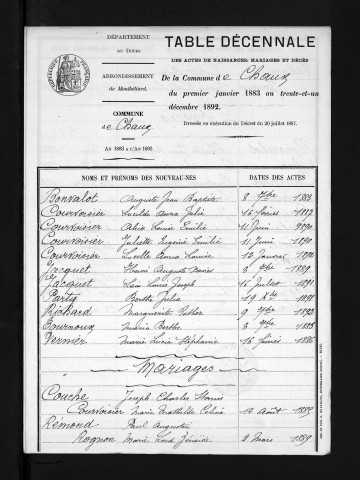 DÉPARTEMENT
DU DOUBS
ARRONDISSEMENT
de Montbéliard.
COMMUNE
de Chaux
AN 1883 à l'AN 1892
TABLE DÉCENNALE
DES ACTES DE NAISSANCES, MARIAGES ET DÉCÈS
De la Commune de Chaux
du premier janvier 1883 au trente-et-un
décembre 1892.
Dressée en exécution du Décret du 20 juillet 1807.
NOMS ET PRÉNOMS DES NOUVEAU-NÉS DATES DES ACTES
Bonvalot Auguste Jean Baptiste 8 1883
Courvoisier Lucilde Anna Julie 16 février 1887
Courvoisier Louise Emilie 11 Juin 1890
Courvoisier Juliette Eugénie Emilie 11 Juin 1890
Courvoisier Lucelle Anna Louise 12 Janvier
Jacquet Henri Auguste 3 1889
Jacquet Léon Louis Joseph 15 Juillet 1891
Party Berthe Julia 19 Xbre
Richard Marguerite Esther 9
Tournoux Maria Berthe 3
Vermier Marie Lucie Stéphanie 16 février 1886
Mariages
Couche Joseph Charles
Courvoisier Marie Mathilde Celina 13 Août
Rémond Paul Augustin
Rognon Marie 2 Mars 1889